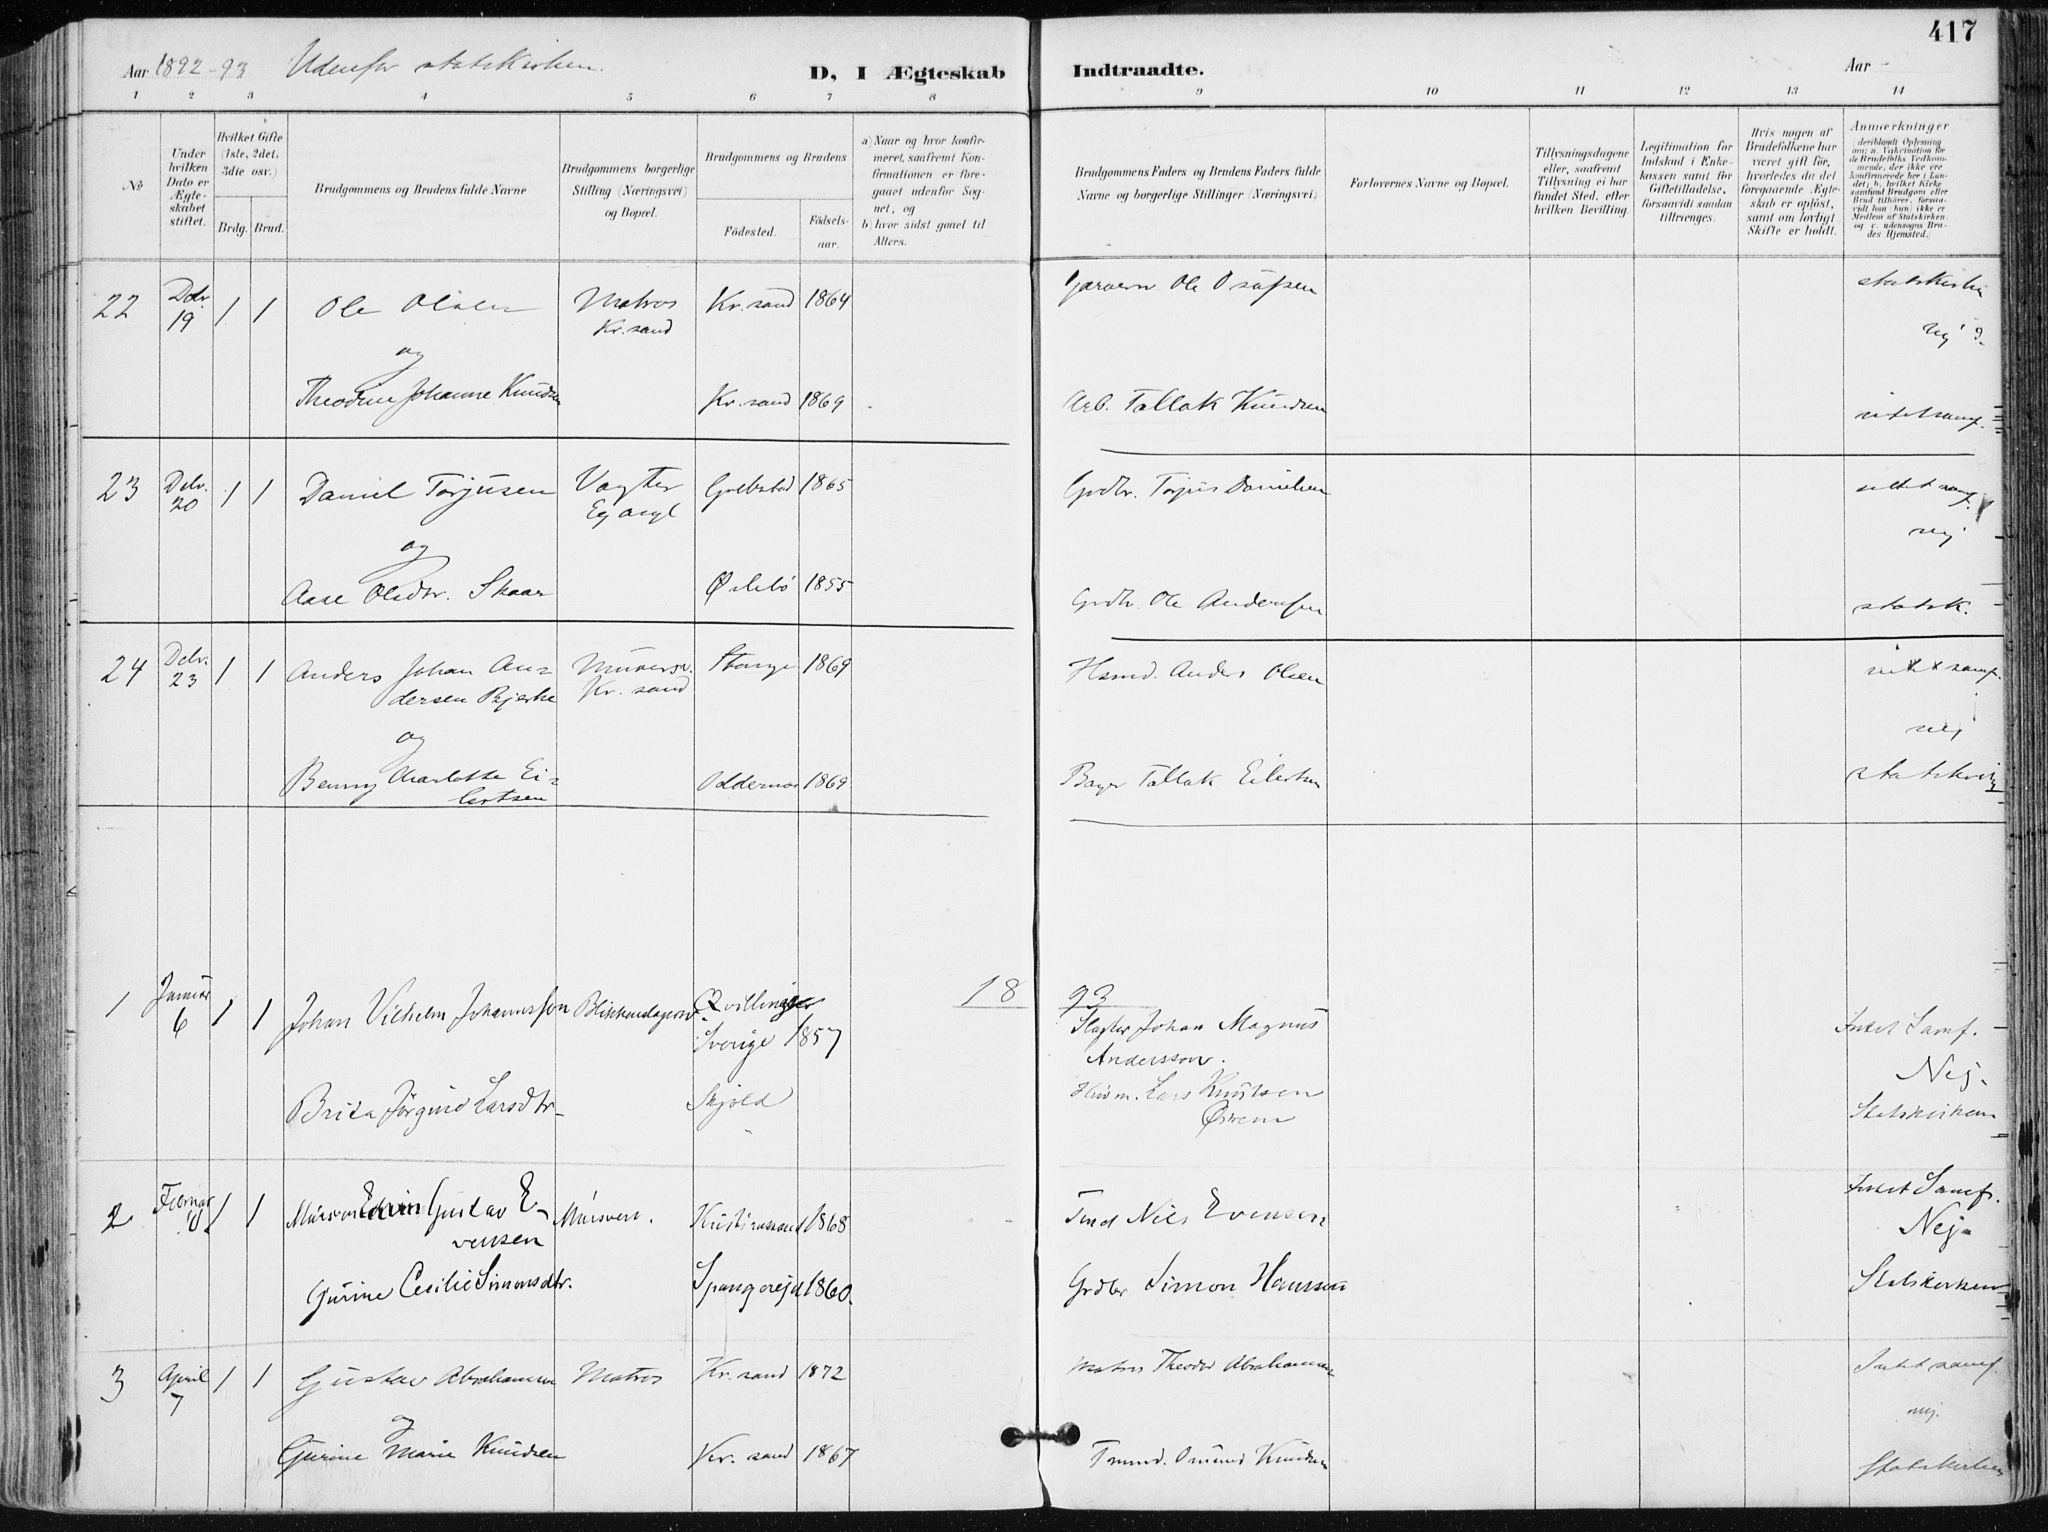 417
Aar 1892-93 Udenfor statskirken.
D, I Ægteskab Indtraadte.
Aar
1 2 3 4 5 6 7 8 9 10 11 12 13 14
No
Under hvilken Dato er Ægteskabet stiftet.
Hvilket Gifte (1ste, 2det, 3die osv.)
Brdg. Brud.
Brudgommens og Brudens fulde Navne
Brudgommens borgerlige Stilling (Næringsvei) og Bopæl.
Brudgommens og Brudens
Födested.
Födsels-aar.
a) Naar og hvor konfirmeret, saafremt Konfirmationen er foregaaet udenfor Sognet, og
b) hvor sidst gaaet til Alters.
Brudgommens Faders og Brudens Faders fulde Navne og borgerlige Stillinger (Næringsvei)
Forlovernes Navne og Bopæl.
Tillysningsdagene eller, saafremt Tillysning ei har fundet Sted, efter hvilken Bevilling.
Legitimation for Indskud i Enkekassen samt for Giftetilladelse, forsaavidt saadan tiltrænges.
Hvis nogen af Brudefolkene har været gift för, hvorledes da det foregaaende Ægteskab er oplöst, samt om lovligt Skifte er holdt.
Anmerkninger deriblandt Oplysning om: a. Vakcination for de Brudefolks Vedkommende, der ikke ere konfirmerede her i Landet; b. hvilket Kirkesamfund Brudgom eller Brud tilhörer, forsaavidt han (hun) ikke er Medlem af Statskirken, og c. udensogns Brudes Hjemsted.
22 Dcbr. 19 1 1 Ole Olsen Matros Kr.sand Kr.sand 1864 Garver Ole
og nej
Theodine Johanne Knudsen Kr.sand 1869 Arb. Tallak Knudsen intet samf.
23 Dcbr. 20 1 1 Daniel Torjusen Vogter Eg asyl 1865 Grdbr. Torjus Danielsen intet samf.
og nej
Aase Olsdtr. Skaar Øslebö 1855 Grdbr. Ole Andersen statsk.
24 Dcbr. 23 1 1 Anders Johan An- Murersv. Stange 1869 Hsmd. Anders Olsen intet samf.
dersen Bjerke Kr.sand
og nej
Benny Charlotte Ei- Oddernes 1869 Tallak Eilertsen
lertsen
18 93
1 Januar 6 1 1 Johan Vilhelm Johannsson Blikkenslagersv. Qvillinge Slagter Johan Magnus Intet Samf.
Sverige 1857 Andersson. Nej.
Brita Jörgine Larsdtr. Skjold Husm. Lars Knutsen Statskirken
2 Februar 1 1 Edvin Gustav E- Mursvend. Kristianssand 1868 Nils Evensen Intet Samf.
vensen Nej.
Gurine Cecilie Simonsdtr. Spangereid 1860. Grdbr Simon Hanssen Statskirken
3 April 7 1 1 Gustav Abrahamsen Matros Kr.sand 1872 Matros Theodor Abrahamsen Intet samf.
og nej.
Gurine Marie Knudsen Kr.sand 1867 Tmmd. Omund Knudsen Statskirken